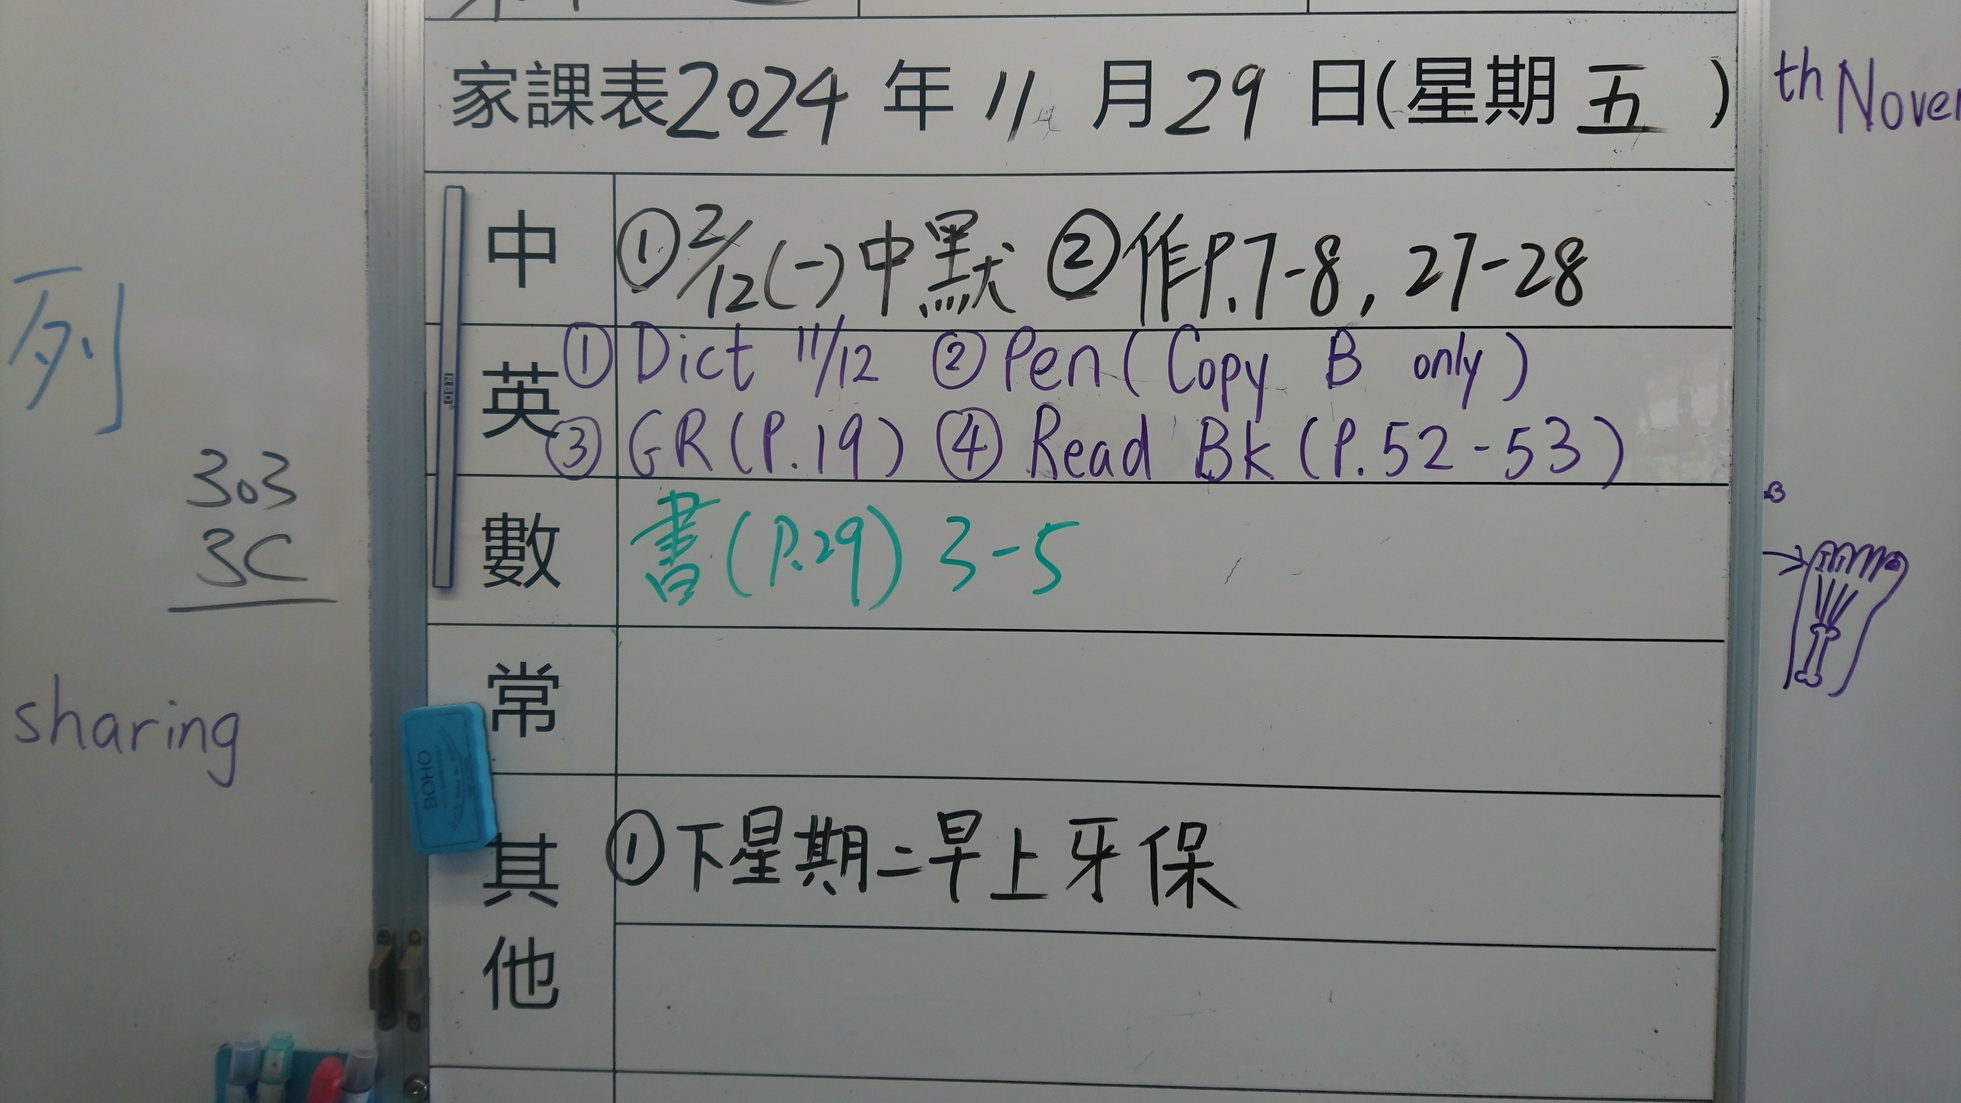 家課表2024年11月29日(星期五)
th Nover
中 ①2/12(一)中默 ②作P.7-8, 27-28
英 ①Dict 11/12 ②Pen(Copy B only)
③GR(P.19) ④Read Bk(P.52-53)
數 書(P.29) 3-5
常
其他 ①下星期二早上牙保
列
303
3C
sharing
BOHO